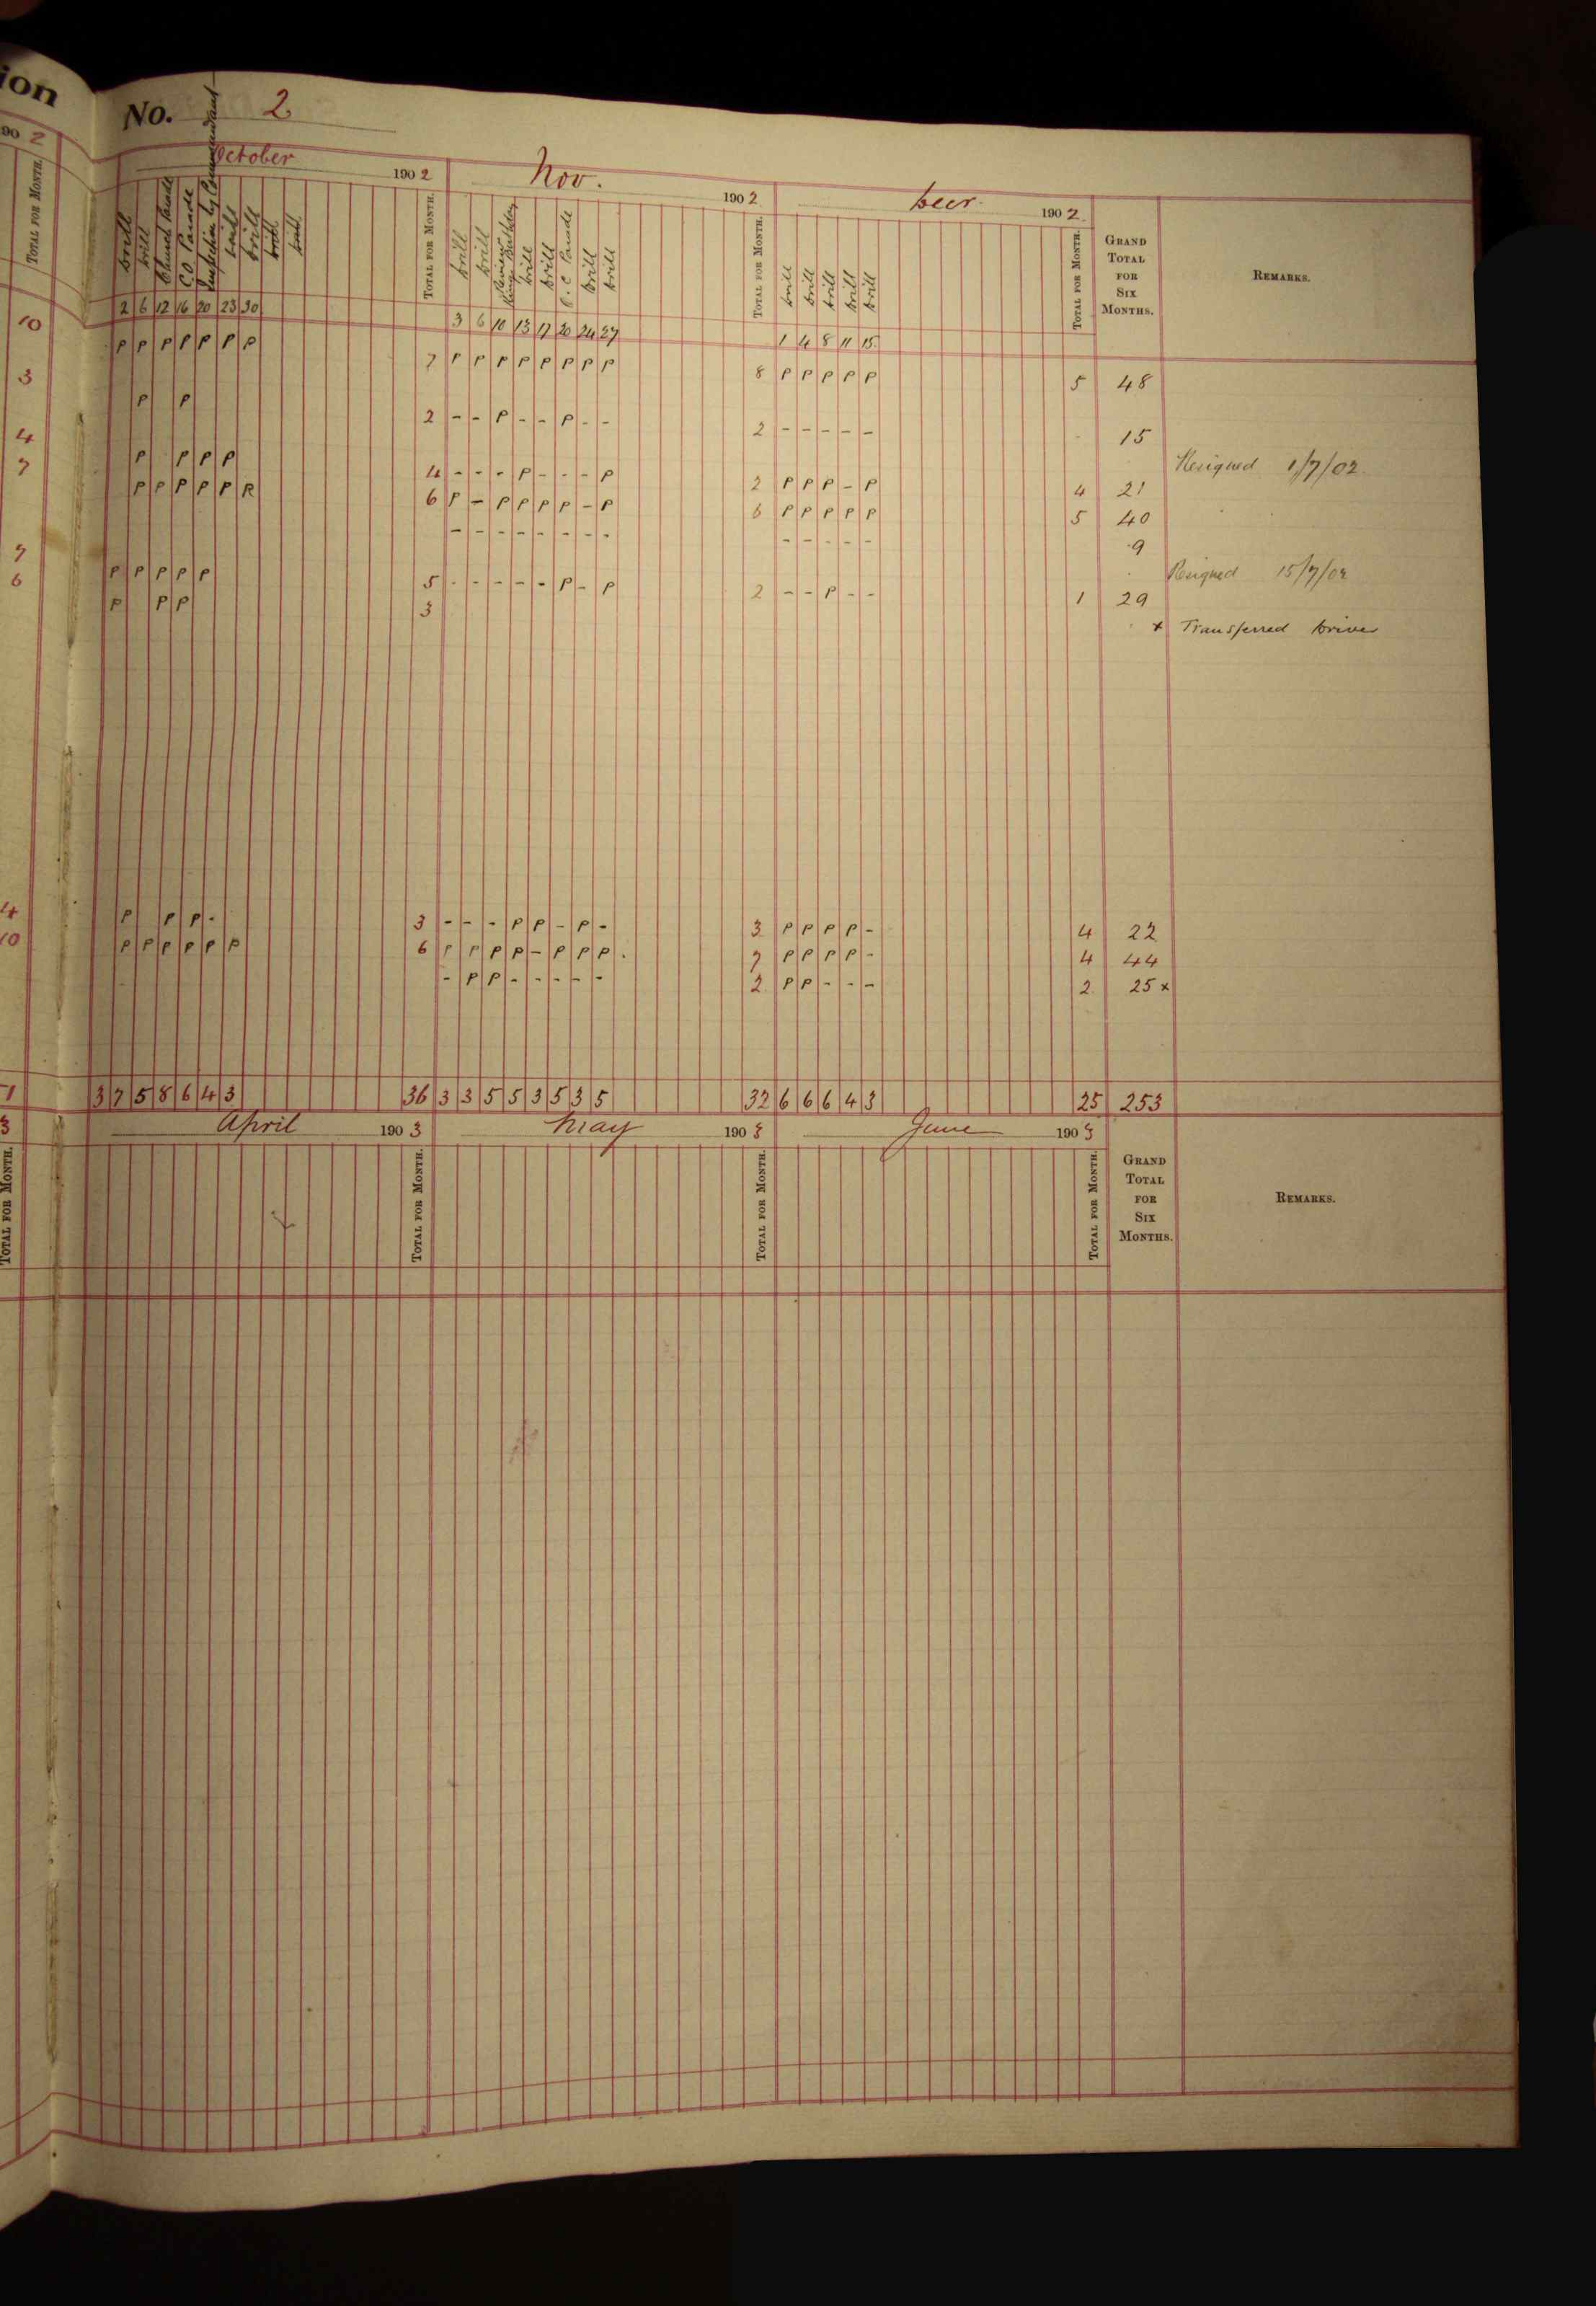 ion No. 2
1902 October 1902 Nov. 1902 Decr. 1902
TOTAL FOR MONTH. Drill Drill Church Parade C.O. Parade Inspection by Commandant Drill Drill Drill Drill TOTAL FOR MONTH. Drill Drill Review King's Birthday Drill Drill O.C Parade Drill Drill TOTAL FOR MONTH. Drill Drill Drill Drill Drill TOTAL FOR MONTH. GRAND TOTAL FOR SIX MONTHS. REMARKS.
2 6 12 16 20 23 30 3 6 10 13 17 20 24 27 1 4 8 11 15
10 P P P P P P P 7 P P P P P P P P 8 P P P P P 5 48
3 P P 2 - - P - - P - - 2 - - - - - 15
Resigned 1/7/02
4 P P P P 4 - - - P - - - P 2 P P P - P 4 21
7 P P P P P R 6 P - P P P P - P 6 P P P P P 5 40
- - - - - - - - - - - - - 9
Resigned 15/7/02
7 P P P P P 5 - - - - - P - P 2 - - P - - 1 29
6 P P P 3 x Transferred Driver
4 P P P - 3 - - - P P - P - 3 P P P P - 4 22
10 P P P P P P 6 P P P P - P P P 7 P P P P - 4 44
- P P - - - - - 2 P P - - - 2 25 x
1 3 7 5 8 6 4 3 36 3 3 5 5 3 5 3 5 32 6 6 6 4 3 25 253
3 April 1903 May 1903 June 1903
TOTAL FOR MONTH. TOTAL FOR MONTH. TOTAL FOR MONTH. TOTAL FOR MONTH. GRAND TOTAL FOR SIX MONTHS. REMARKS.